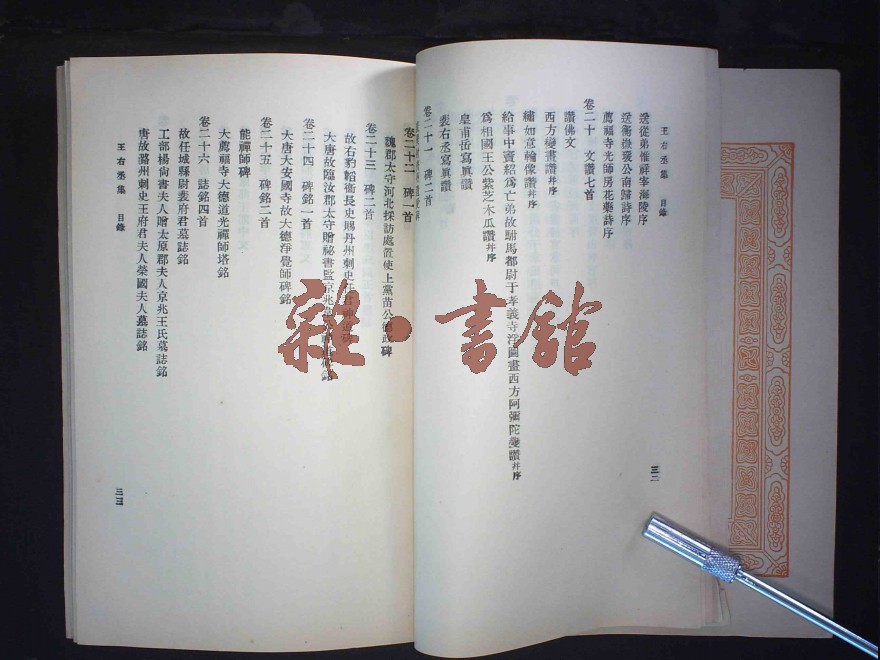 王右丞集 目錄
三二
送從弟惟祥宰海陵序
送衡嶽瑗公南歸詩序
薦福寺光師房花藥詩序
卷二十 文讚七首
讚佛文
西方變畫讚并序
繡如意輪像讚并序
給事中竇紹爲亡弟故駙馬郡尉于孝義寺浮圖畫西方阿彌陀變讚并序
爲相國王公紫芝木瓜讚并序
皇甫岳寫眞讚
裴右丞寫眞讚
卷二十一 碑二首
卷二十二 碑一首
魏郡太守河北採訪處置使上黨苗公德政碑
卷二十三 碑二首
故右豹韜衞長史賜丹州刺史任君神道碑
大唐故臨汝郡太守贈祕書監京兆銘
卷二十四 碑銘一首
大唐大安國寺故大德淨覺師碑銘
卷二十五 碑銘二首
能禪師碑
大薦福寺大德道光禪師塔銘
卷二十六 誌銘四首
故任城縣尉裴府君墓誌銘
工部楊尚書夫人贈太原郡夫人京兆王氏墓誌銘
唐故潞州刺史王府君夫人榮國夫人墓誌銘
王右丞集 目錄
三三
雜·書館